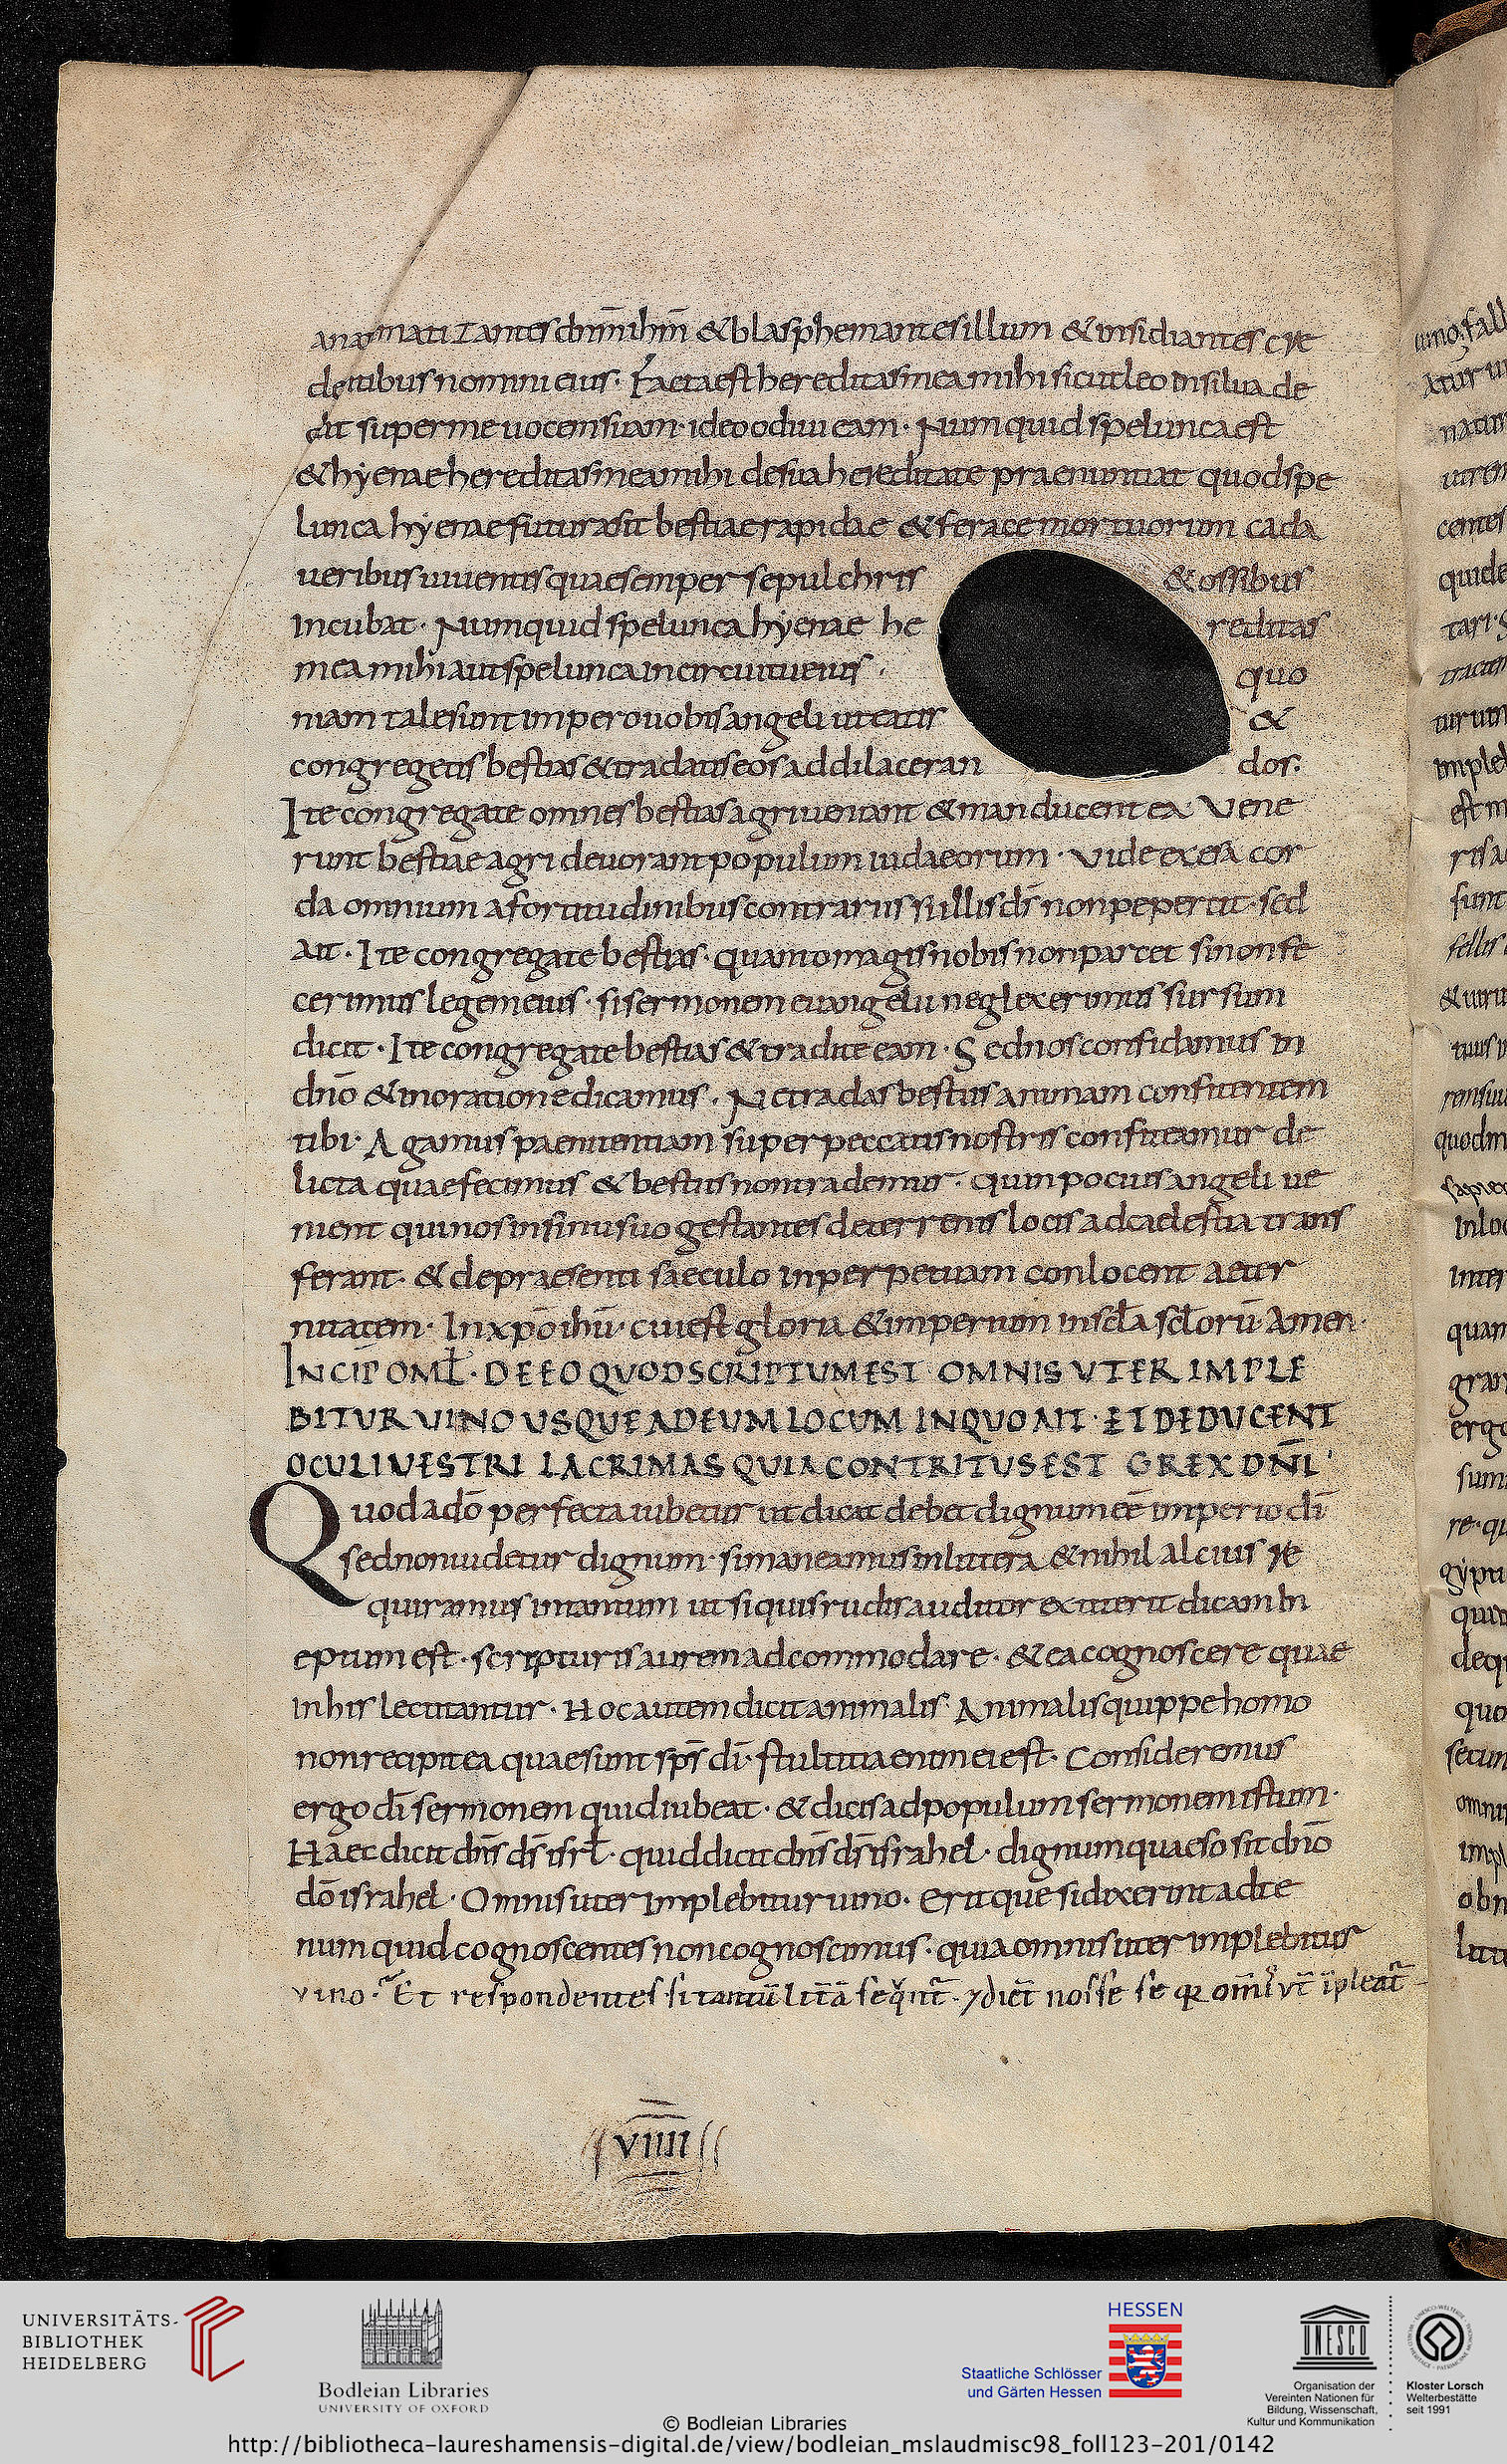 anatimatizantes dnm ihm & blasphemantes illum & insidiantes cre
dentibus nomini eius. Facta est hereditas mea mihi sicut leo in silua de
dit super me uocem suam. ideo odiui eam. Numquid spelunca est
& hyenae hereditas mea mihi de sua hereditate praenuntiat quod spe
lunca hyenae futura sit bestiae rapidae & ferace mortuorum cada
ueribus uiuentis quae semper sepulchris & ossibus
incubat. Numquid spelunca hyenae he reditas
mea mihi aut spelunca in circuitu eius. quo
niam tales sunt impero uobis angeli ut eatis &
congregetis bestias & tradatis eos ad dilaceran dos.
Ite congregate omnes bestias agri ueniant & manducent ea. Vene
runt bestiae agri deuorant populum iudaeorum. Vide
da omnium a fortitudinibus contrariis si illis ds non pepercit. sed
ait. Ite congregate bestias. quanto magis nobis non parcet si non fe
cerimus legem eius. si sermonem euangelii neglexerimus sursum
dicit. Ite congregate bestias & tradite eam. Sed nos confidamus in
dno & in oratione dicamus. Ne tradas bestiis animam confitentem
tibi. Agamus paenitentiam super peccatis nostris confiteamur de
licta quae fecimus & bestiis non trademur. quin pocius angeli ue
nient qui nos in sinu suo gestantes de terrenis locis ad caelestia trans
ferant. & de praesenti saeculo in perpetuam conlocent aeter
nitatem. In xpo ihu. cui est gloria & imperium in scla sclorum. Amen.
INCIP OML. DE EO QUOD SCRIPTUM EST OMNIS UTER IMPLE
BITUR VINO USQUE AD EUM LOCUM IN QUO AIT. ET DEDUCENT
OCULI VESTRI LACRIMAS QUIA CONTRITUS EST GREX DNI.
Quod a do perfecta iubetur ut dicat debet dignum ee imperio di
sed non uidetur dignum. si maneamus in littera & nihil alcius re
quiramus in tantum ut si quis rudis auditor extiterit dicam in
eptum est. scripturis aurem adcommodare. & ea cognoscere quae
in his lectitantur. Hoc autem dicit animalis. Animalis quippe homo
non recipit ea quae sunt sps di. stultitia enim ei est. Consideremus
ergo di sermonem quid iubeat. & dicis ad populum sermonem istum.
Haec dicit dns ds isrl. quid dicit dns ds israhel. dignum quaeso sit dno
do israhel. Omnis uter implebitur uino. Eritque si dixerint ad te
numquid cognoscentes non cognoscimus. quia omnis uter implebitur
vino. Et respondentes si tantu lrā seqnt. 7 diēt nosse se qr omis vt ipleat
VIIII
UNIVERSITÄTS-
BIBLIOTHEK
HEIDELBERG
Bodleian Libraries
UNIVERSITY OF OXFORD
HESSEN
Staatliche Schlösser
und Gärten Hessen
UNESCO
Organisation der
Vereinten Nationen für
Bildung, Wissenschaft,
Kultur und Kommunikation
Kloster Lorsch
Welterbestätte
seit 1991
© Bodleian Libraries
http://bibliotheca-laureshamensis-digital.de/view/bodleian_mslaudmisc98_foll123-201/0142